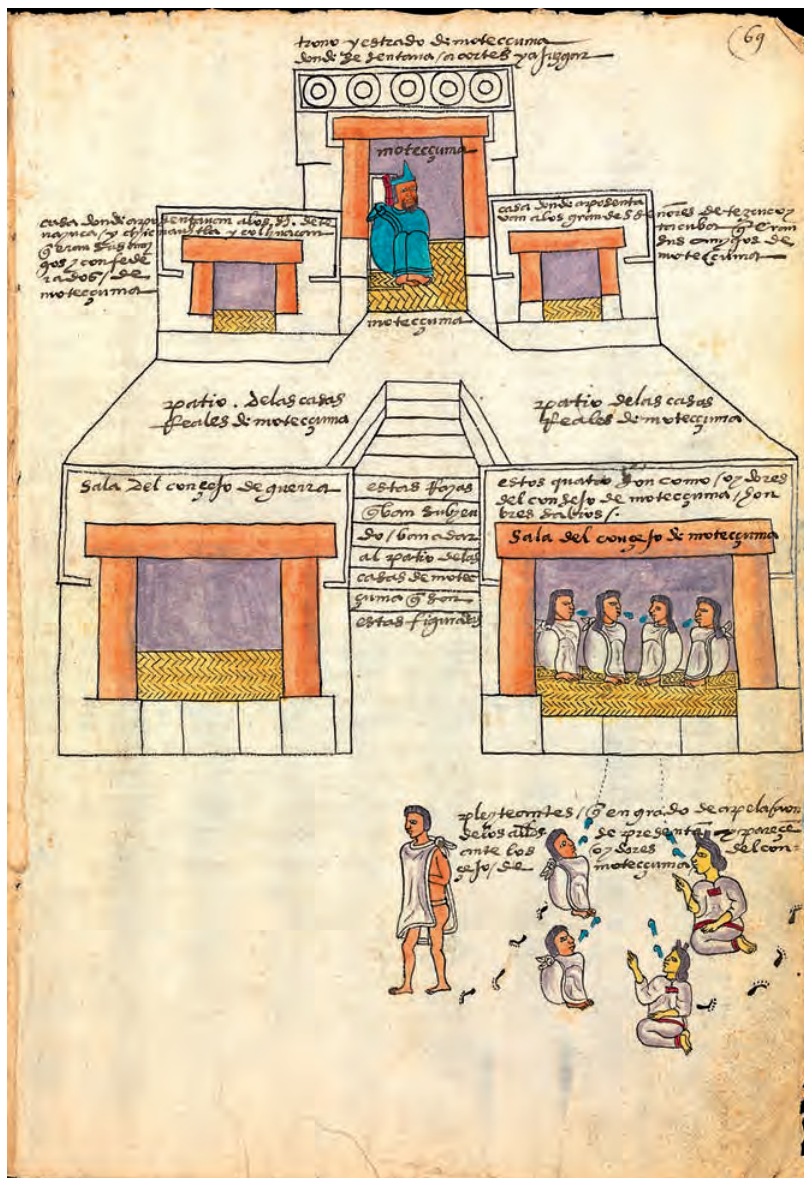 69
trono y estrado de moteccuma
donde se sentaua / a cortes y a juzgar
moteccuma
casa donde aposentauan a los s. de te
nayuca / y chicnauhtla y colhuacan
q̃ eran sus ami
gos y confede
rados / de
moteccuma
casa donde aposenta
van a los grandes señores de tezcuco y
tacuba q̃ eran
sus amigos de
moteccuma
moteccuma
patio . de las casas
Reales de moteccuma
patio de las casas
Reales de moteccuma
Sala del concejo de guerra
estas Rayas
q̃ ban subyen
do / ban a dar
al patio de las
casas de motec
çuma q̃ son
estas figuradas
estos quatro son como / oydores
del consejo de moteccuma / hon
bres sabios /.
Sala del concejo de moteccuma
pleyteantes / q̃ en grado de apelaçion
de los
de presentã y pareçẽ
ante los oydores del con-
sejo / de moteccuma